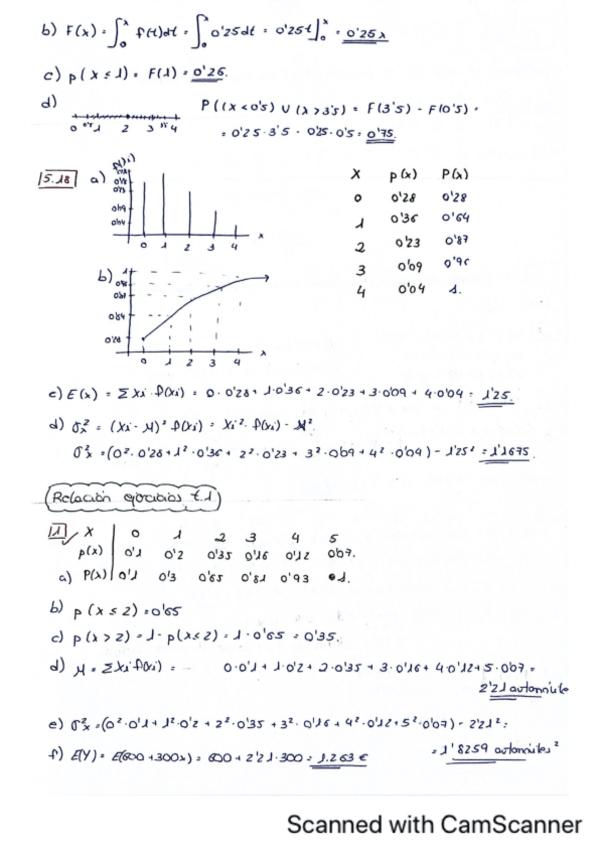 b) F(x) = ∫₀ˣ f(t)dt = ∫₀ˣ 0'25dt = 0'25t]₀ˣ = 0'25x
c) p(x ≤ 1) = F(1) = 0'25.
d) P((x < 0'5) ∪ (x > 3'5) = F(3'5) - F(0'5) =
0 0'5 1 2 3 3'5 4
= 0'25·3'5 - 0'25·0'5 = 0'75.
5.18 a)
0 1 2 3 4 x
x p(x) P(x)
0 0'28 0'28
1 0'36 0'64
2 0'23 0'87
3 0'09 0'96
4 0'04 1.
b)
0 1 2 3 4 x
c) E(x) = Σxi·P(xi) = 0·0'28 + 1·0'36 + 2·0'23 + 3·0'09 + 4·0'04 = 1'25.
d) σx² = (xi - μ)²·P(xi) = xi²·P(xi) - μ².
σ²x = (0²·0'28 + 1²·0'36 + 2²·0'23 + 3²·0'09 + 4²·0'04) - 1'25² = 1'1675.
Relación ejercicios t.1
1 x 0 1 2 3 4 5
p(x) 0'1 0'2 0'35 0'16 0'12 0'07.
a) P(x) 0'1 0'3 0'65 0'81 0'93 1.
b) p(x ≤ 2) = 0'65
c) p(x > 2) = 1 - p(x ≤ 2) = 1 - 0'65 = 0'35.
d) μ = Σxi·P(xi) = 0·0'1 + 1·0'2 + 2·0'35 + 3·0'16 + 4·0'12 + 5·0'07 =
2'21 automóviles
e) σ²x = (0²·0'1 + 1²·0'2 + 2²·0'35 + 3²·0'16 + 4²·0'12 + 5²·0'07) - 2'21² =
= 1'8259 automóviles²
f) E(Y) = E(600 + 300x) = 600 + 2'21·300 = 1.263 €
Scanned with CamScanner